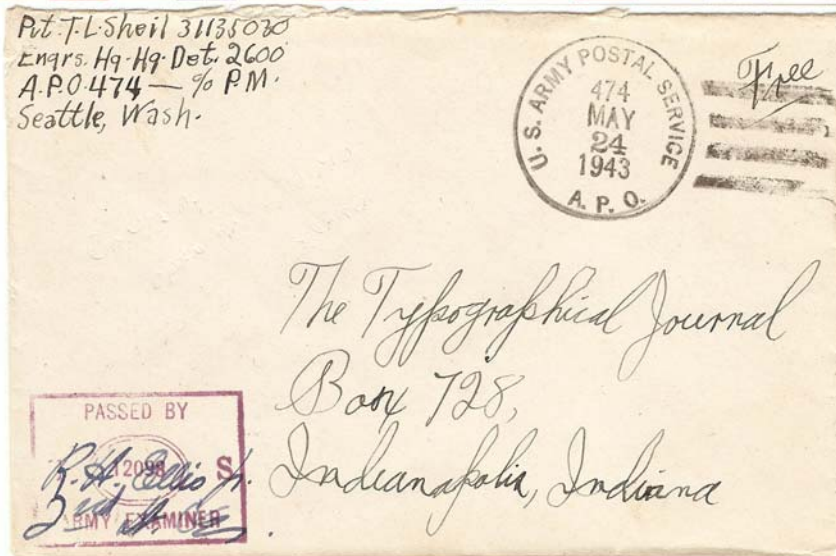 Pvt. T. L. Sheil 31135030
Engrs. Hq. Hq. Det. 2600
A.P.O. 474 — % P.M.
Seattle, Wash.
U. S. ARMY POSTAL SERVICE
474
MAY
24
1943
A. P. O.
Free
The Typographical Journal
Box 728,
Indianapolis, Indiana
PASSED BY
12098 S
R. H. Ellis Jr.
2nd Lt.
ARMY EXAMINER